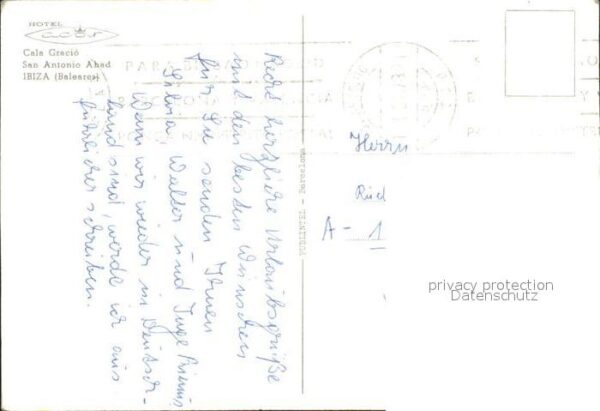 HOTEL
acor
Cala Gració
San Antonio Abad
IBIZA (Baleares)
Recht herzliche Urlaubsgrüße
und den besten Wünschen
für Sie senden Ihnen
Silvia, Walter und Inge
Wenn wir wieder in Deutsch-
land sind, werde ich aus-
führlicher schreiben.
PUBLINTEL - Barcelona
Herrn
Rud
A - 1
privacy protection
Datenschutz